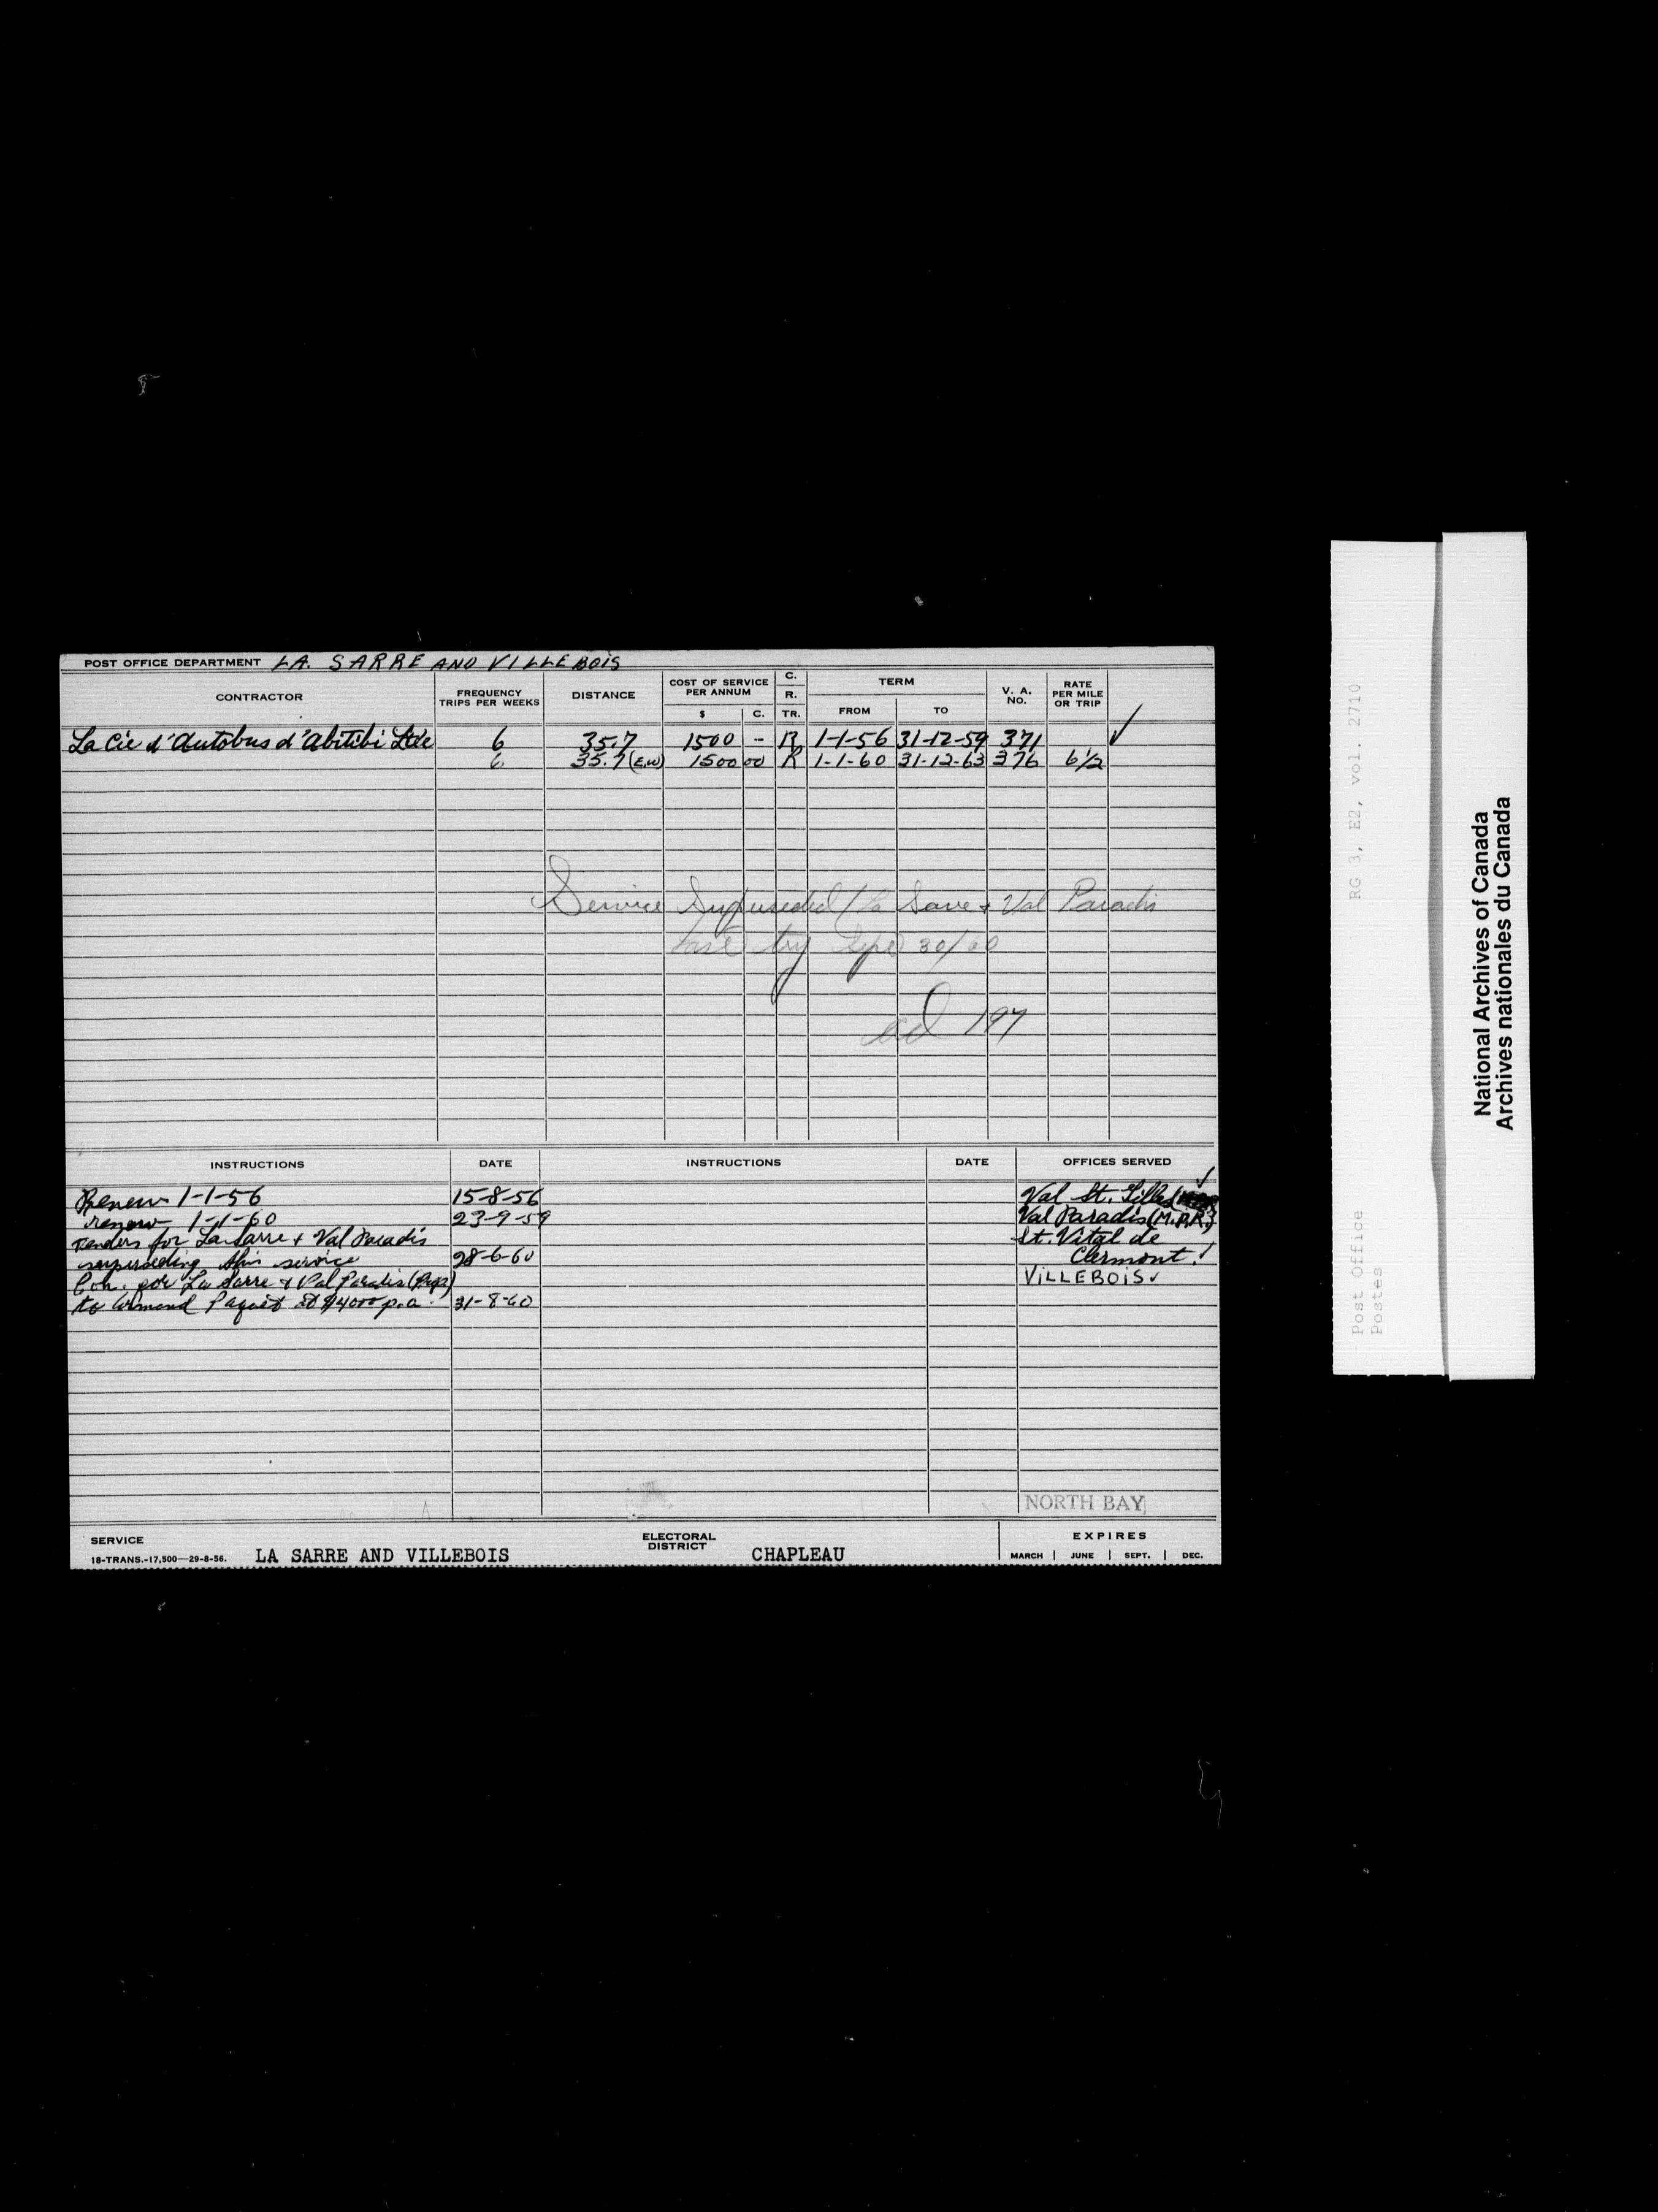 POST OFFICE DEPARTMENT LA. SARRE AND VILLEBOIS
CONTRACTOR FREQUENCY TRIPS PER WEEKS DISTANCE COST OF SERVICE PER ANNUM $ C. C. R. TR. TERM FROM TO V. A. NO. RATE PER MILE OR TRIP
La Cie d'Autobus d'Abitibi Ltée 6 35.7 1500 - R 1-1-56 31-12-59 371 ✓
6 35.7 (E.W) 1500 00 R 1-1-60 31-12-63 376 6 1/2
Service Superseded / La Sarre + Val Paradis
last trip Sept 30/60
ad 197
INSTRUCTIONS DATE INSTRUCTIONS DATE OFFICES SERVED
Renew 1-1-56 15-8-56 Val St. Gilles
renew 1-1-60 23-9-59 Val Paradis (M.P.R.)
Tenders for La Sarre + Val Paradis St. Vital de
superseding this service 28-6-60 Clermont
Con. for La Sarre & Val Paradis VILLEBOIS ✓
to Armand Paquet at $4000 p.a. 31-8-60
NORTH BAY
SERVICE ELECTORAL DISTRICT EXPIRES
18-TRANS.-17,500—29-8-56. LA SARRE AND VILLEBOIS CHAPLEAU MARCH | JUNE | SEPT. | DEC.
RG 3, E2, vol. 2710
Post Office
Postes
National Archives of Canada
Archives nationales du Canada